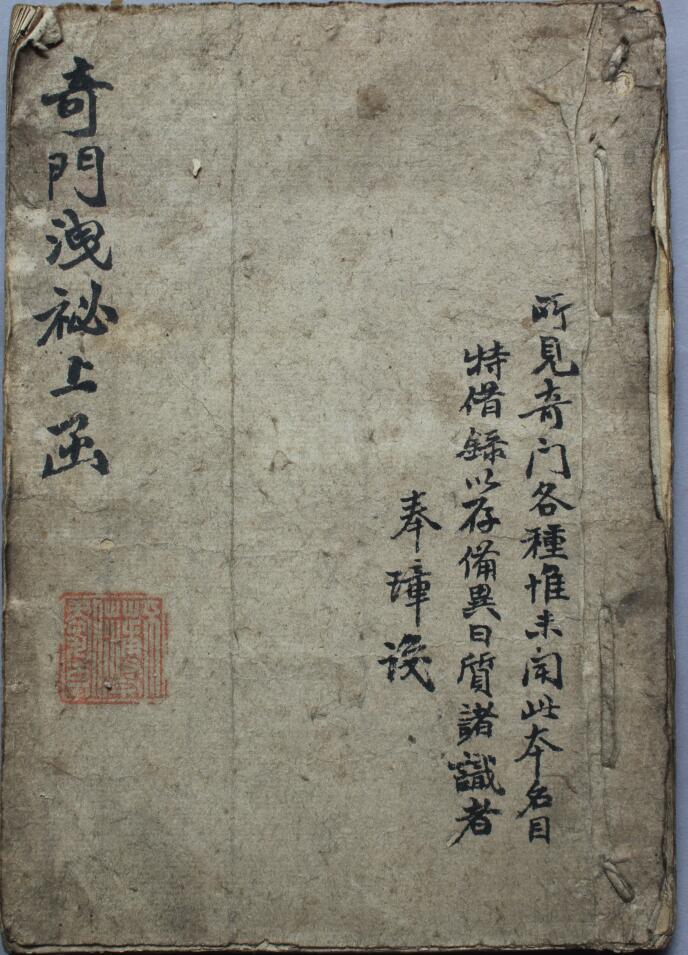 所見奇门各種惟未聞此本名目
特借錄以存備異日質諸識者
奉璋
奇門洩祕上函